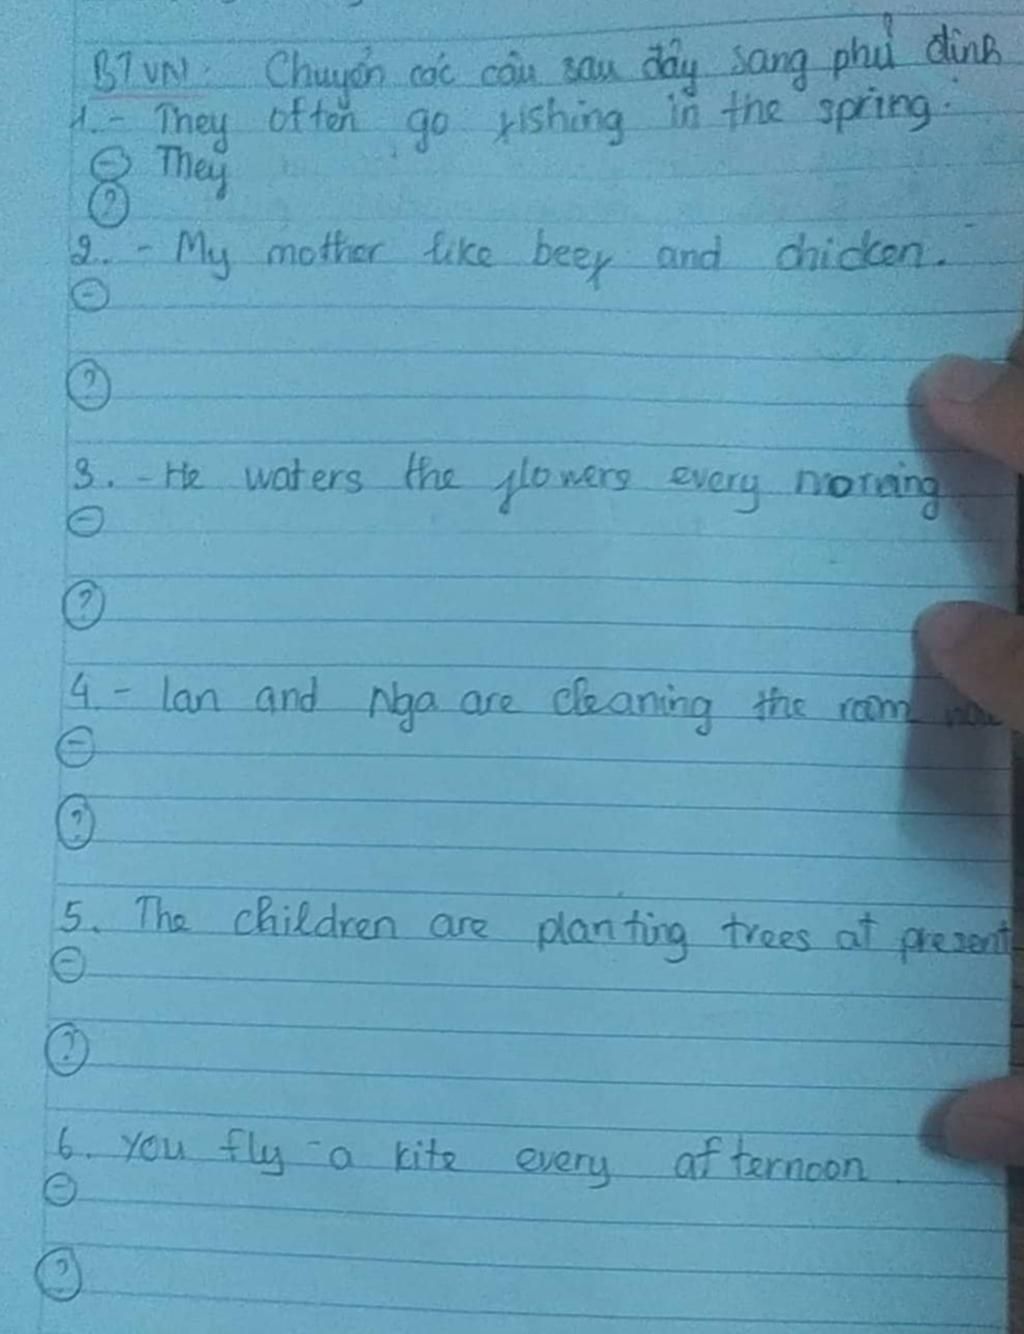 BTVN: Chuyển các câu sau đây sang phủ định
1. - They often go fishing in the spring.
⊖ They
?
2. - My mother like beef and chicken.
⊖
?
3. - He waters the flowers every morning
⊖
?
4 - lan and Nga are cleaning the room now
⊖
?
5. The children are planting trees at present
⊖
?
6. You fly a kite every afternoon.
⊖
?